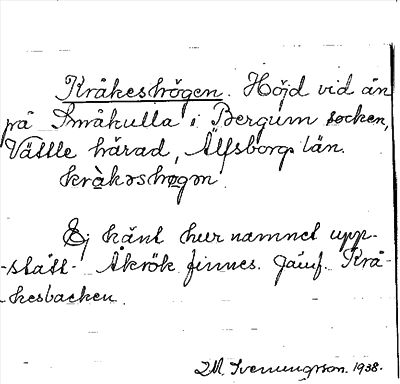 Kråkeshögen. Höjd vid ån
på Småkulla i Bergum socken,
Vättle härad, Älfsborgs län.
kràkəshøgən
Ej känt hur namnet upp-
-stått. Åkrök finnes. Jämf. Krå-
-kesbacken.
M. Svenungson. 1938.